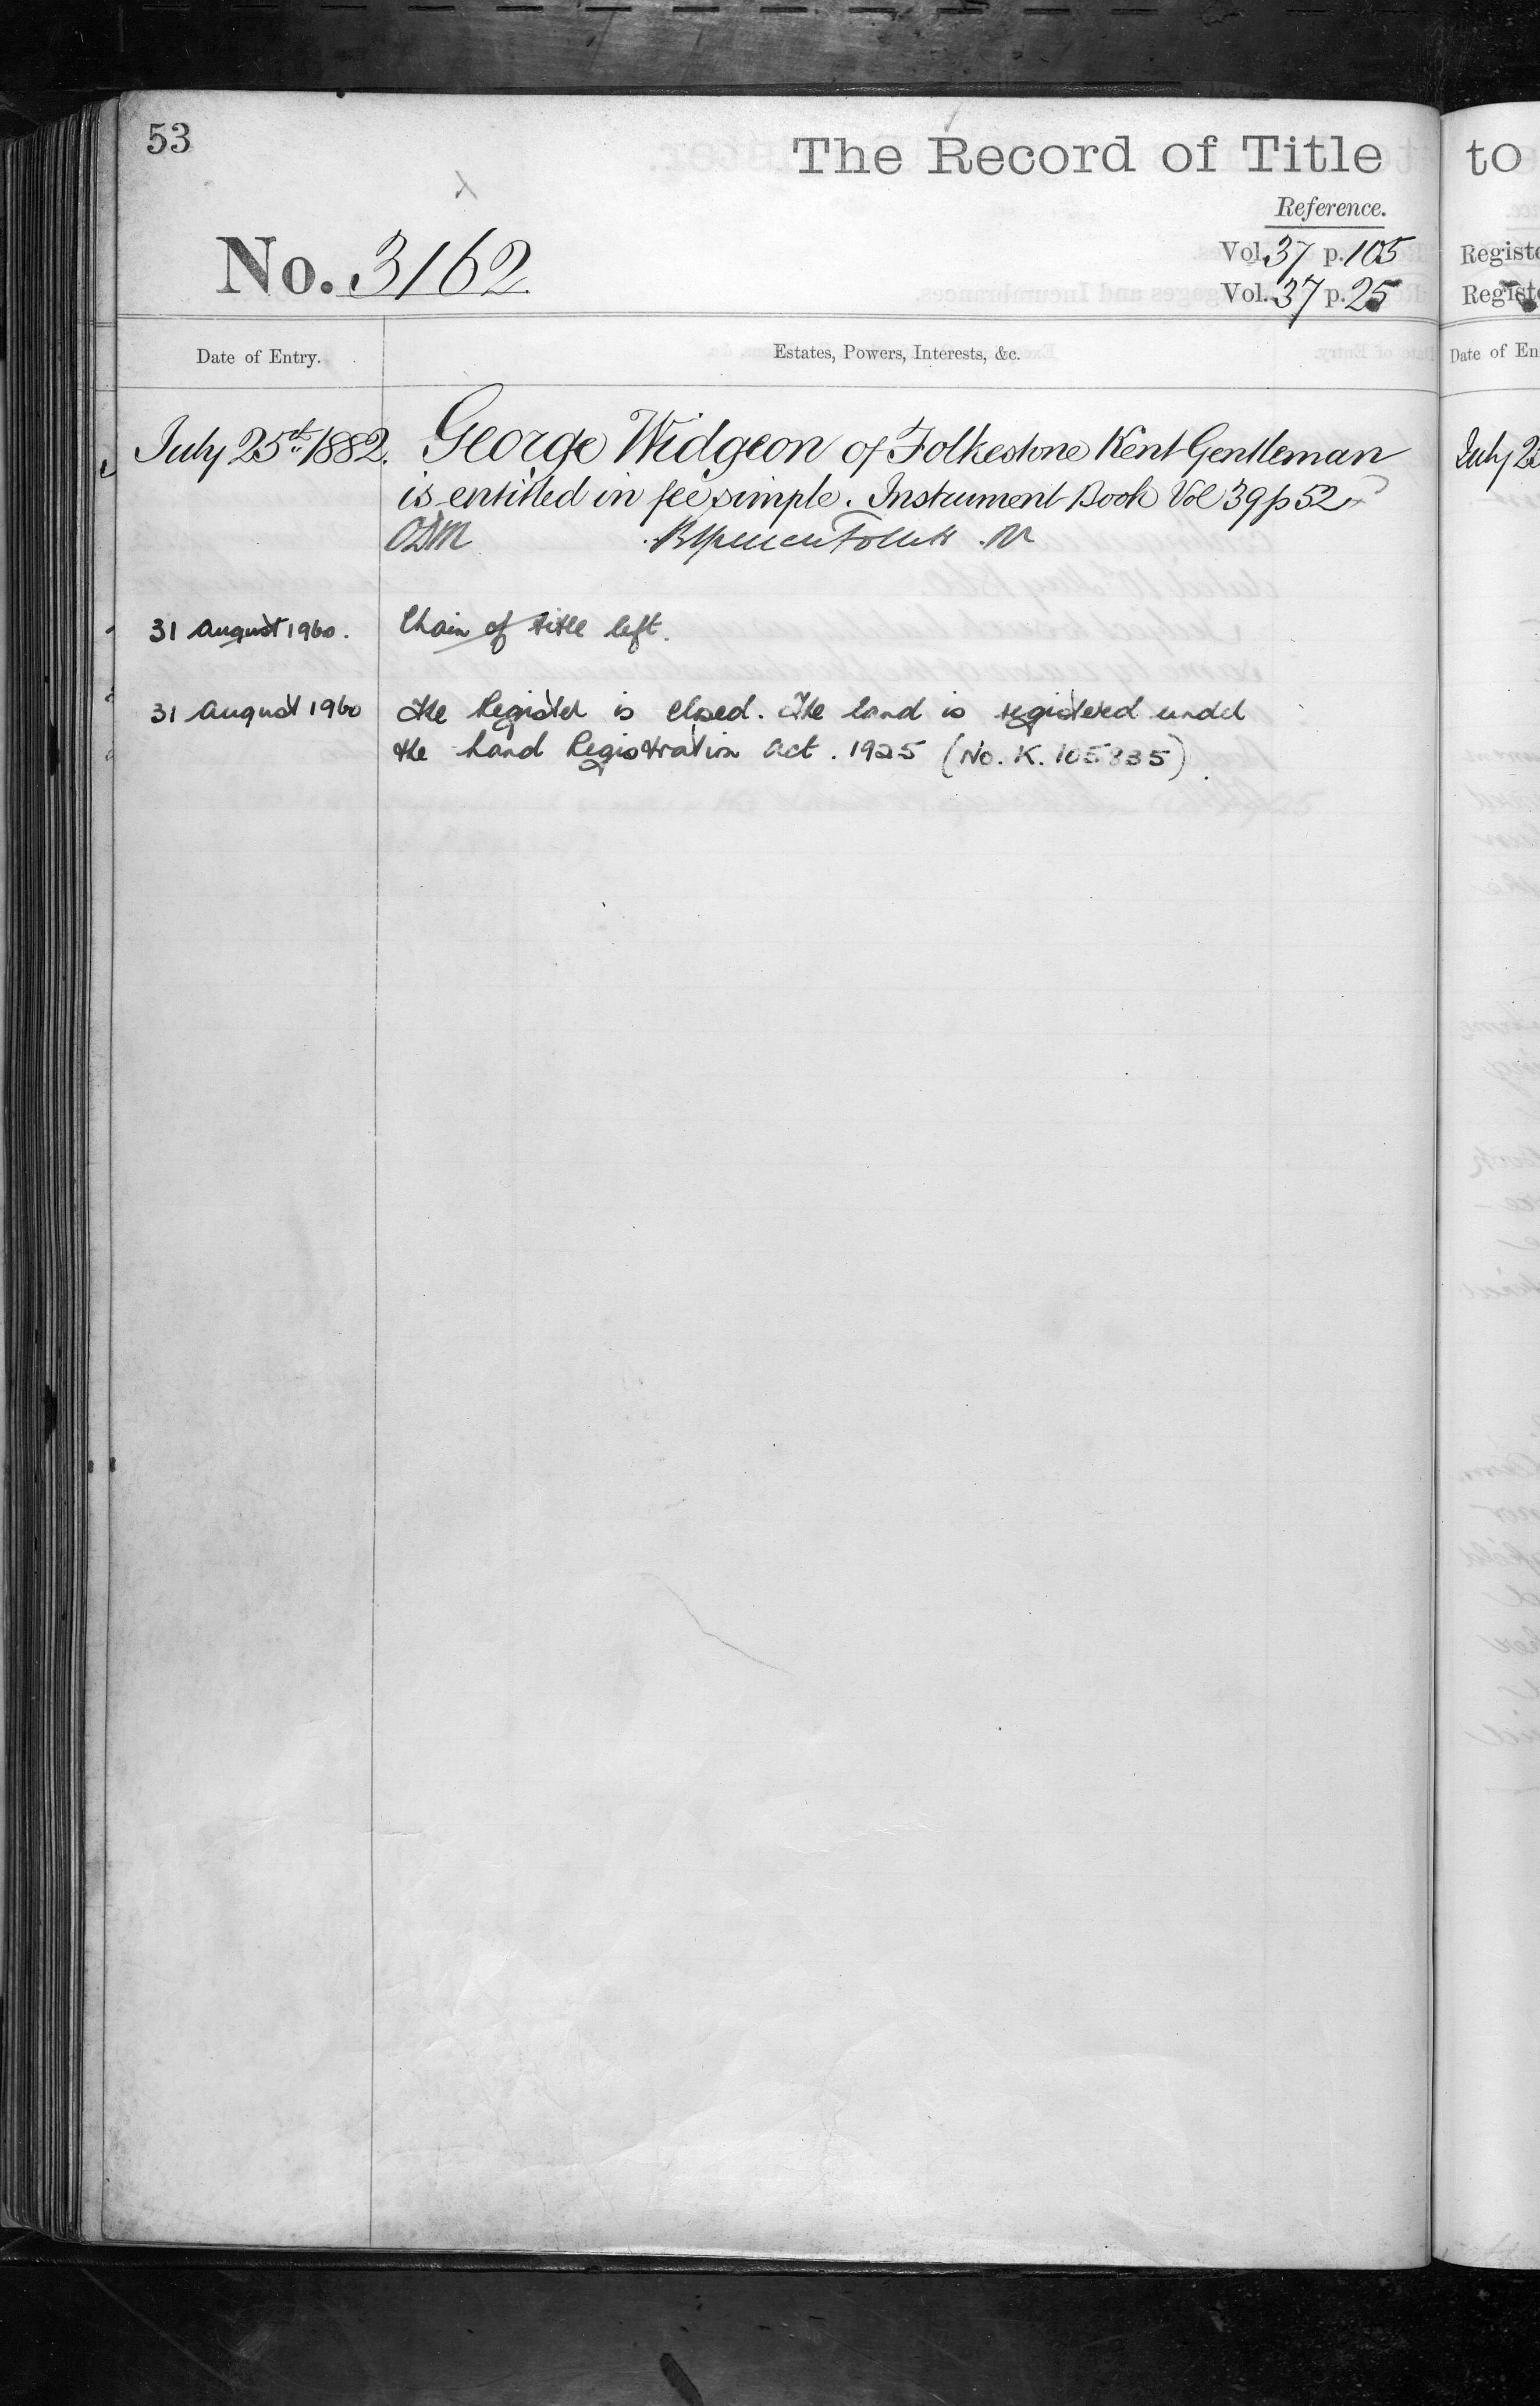 53
The Record of Title to
Reference.
No. 3162
Vol. 37 p. 105
Vol. 37 p. 25
Date of Entry.
Estates, Powers, Interests, &c.
July 25th 1882. George Widgeon of Folkestone Kent Gentleman
is entitled in fee simple. Instrument Book Vol 39 p 52
31 August 1960. Chain of title left.
31 August 1960 The Register is closed. The land is registered under
the Land Registration Act. 1925 (No. K. 105835).
Date of En
July 2